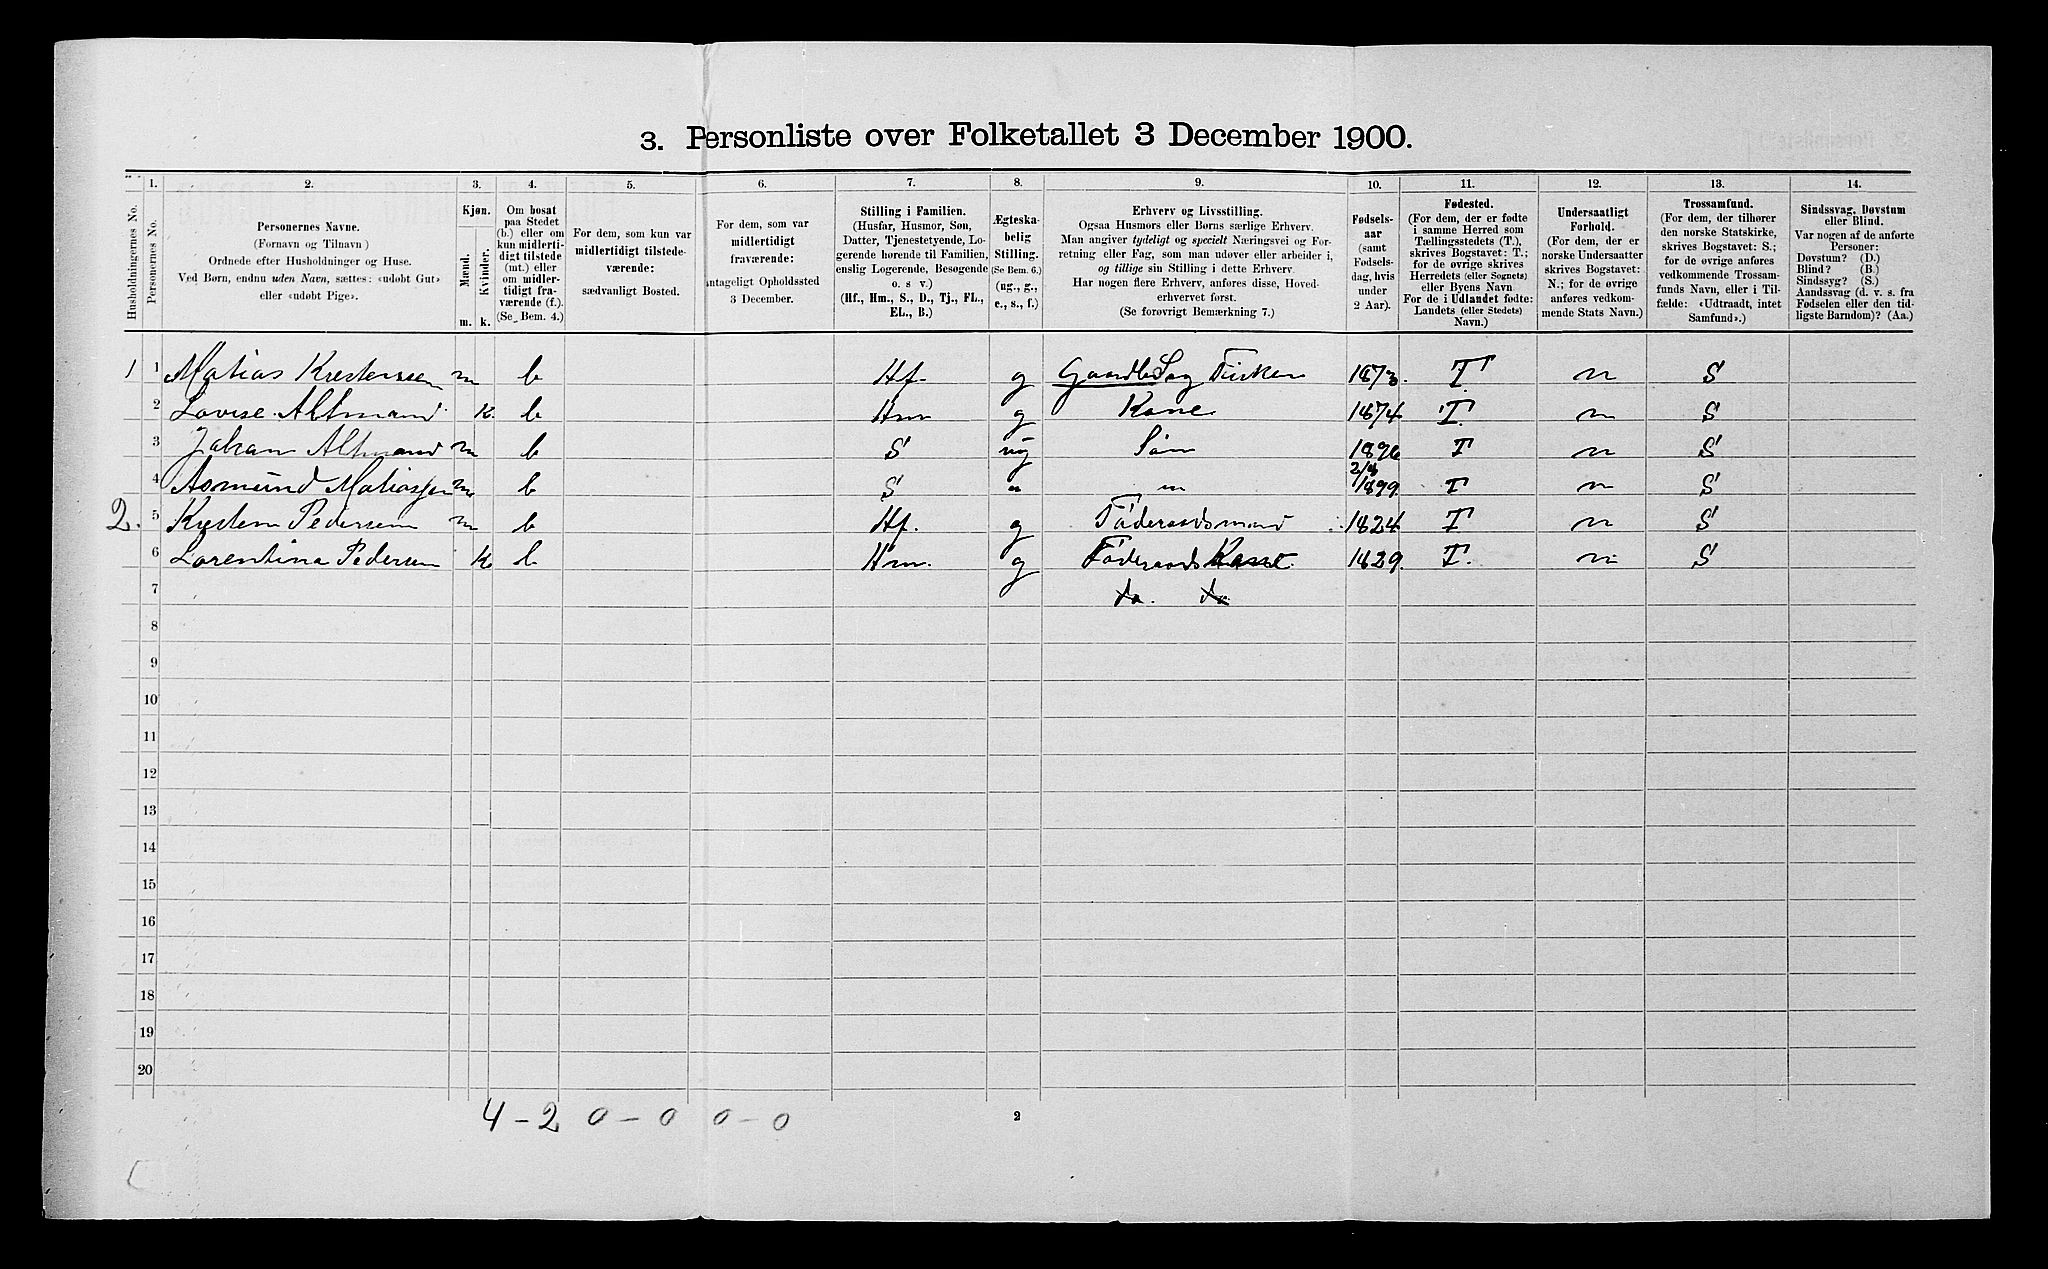 3. Personliste over Folketallet 3 December 1900.
1. 2. 3. 4. 5. 6. 7. 8. 9. 10. 11. 12. 13. 14.
Husholdningernes No.
Personernes No.
Personernes Navne.
(Fornavn og Tilnavn)
Ordnede efter Husholdninger og Huse.
Ved Børn, endnu uden Navn, sættes: «udøbt Gut»
eller «udøbt Pige».
Kjøn.
Mænd.
Kvinder.
m. k.
Om bosat
paa Stedet
(b.) eller om
kun midlerti-
digt tilstede
(mt.) eller
om midler-
tidigt fra-
værende (f.)
(Se Bem. 4.)
For dem, som kun var
midlertidigt tilstede-
værende:
sædvanligt Bosted.
For dem, som var
midlertidigt
fraværende:
antageligt Opholdssted
3 December.
Stilling i Familien.
(Husfar, Husmor, Søn,
Datter, Tjenestetyende, Lo-
gerende hørende til Familien,
enslig Logerende, Besøgende
o. s v.)
(Hf., Hm., S., D., Tj., FL.,
EL., B.)
Ægteska-
belig
Stilling.
(Se Bem. 6.)
(ug., g.,
e., s., f.)
Erhverv og Livsstilling.
Ogsaa Husmors eller Børns særlige Erhverv.
Man angiver tydeligt og specielt Næringsvei og For-
retning eller Fag, som man udøver eller arbeider i,
og tillige sin Stilling i dette Erhverv.
Har nogen flere Erhverv, anføres disse, Hoved-
erhvervet først.
(Se forøvrigt Bemærkning 7.)
Fødsels-
aar
(samt
Fødsels-
dag, hvis
under
2 Aar).
Fødested.
(For dem, der er fødte
i samme Herred som
Tællingsstedets (T.),
skrives Bogstavet: T.;
for de øvrige skrives
Herredets (eller Sognets)
eller Byens Navn
For de i Udlandet fødte:
Landets (eller Stedets)
Navn.)
Undersaatligt
Forhold.
(For dem, der er
norske Undersaatter
skrives Bogstavet:
N.; for de øvrige
anføres vedkom-
mende Stats Navn.)
Trossamfund.
(For dem, der tilhører
den norske Statskirke,
skrives Bogstavet: S.;
for de øvrige anføres
vedkommende Trossam-
funds Navn, eller i Til-
fælde: «Udtraadt, intet
Samfund».)
Sindssvag, Døvstum
eller Blind.
Var nogen af de anførte
Personer:
Døvstum? (D.)
Blind? (B.)
Sindssyg? (S.)
Aandssvag (d. v. s. fra
Fødselen eller den tid-
ligste Barndom)? (Aa.)
1 1 Matias Krestenssen m b Hf. g Fisker 1873. T n S
2 Lovise Altmand K b Hm g Kone 1874 T. n S
3 Johan Altmand m b S ug Søn 1896 T n S
4 Asmund Matiassen m b S " " 1899 T n S
2. 5 Kresten Pedersen m b Hf. g Føderaadsmand 1824 T n S
6 Lorentina Pedersen K b Hm. g Føderaads Kone 1829. T. n S
7 do. do
8
9
10
11
12
13
14
15
16
17
18
19
20
4 - 2 0 - 0 0 - 0 2